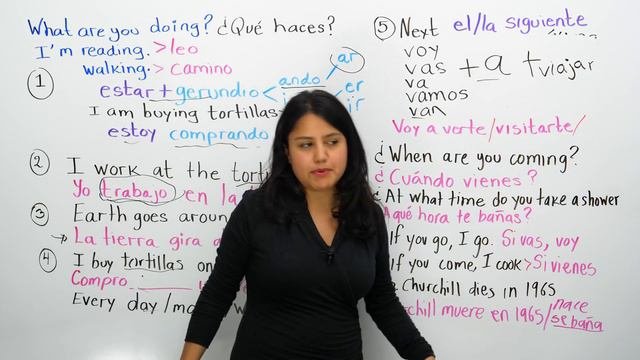 What are you doing? ¿Qué haces?
I'm reading. > leo
walking. > Camino
① estar + gerundio < ando ar
er
ir
I am buying tortillas
estoy comprando
② I work at the
Yo trabajo en
③ Earth goes
→ La tierra gira
④ I buy tortillas
Compro
Every day /
⑤ Next el/la siguiente
voy
vas + a + viajar
va
vamos
van
Voy a verte/visitarte/
¿When are you coming?
¿Cuándo vienes?
¿At what time do you take a shower
A qué hora te bañas?
If you go, I go. Si vas, voy
If you come, I cook > Si vienes
Churchill dies in 1965
muere en 1965/nace
se baña